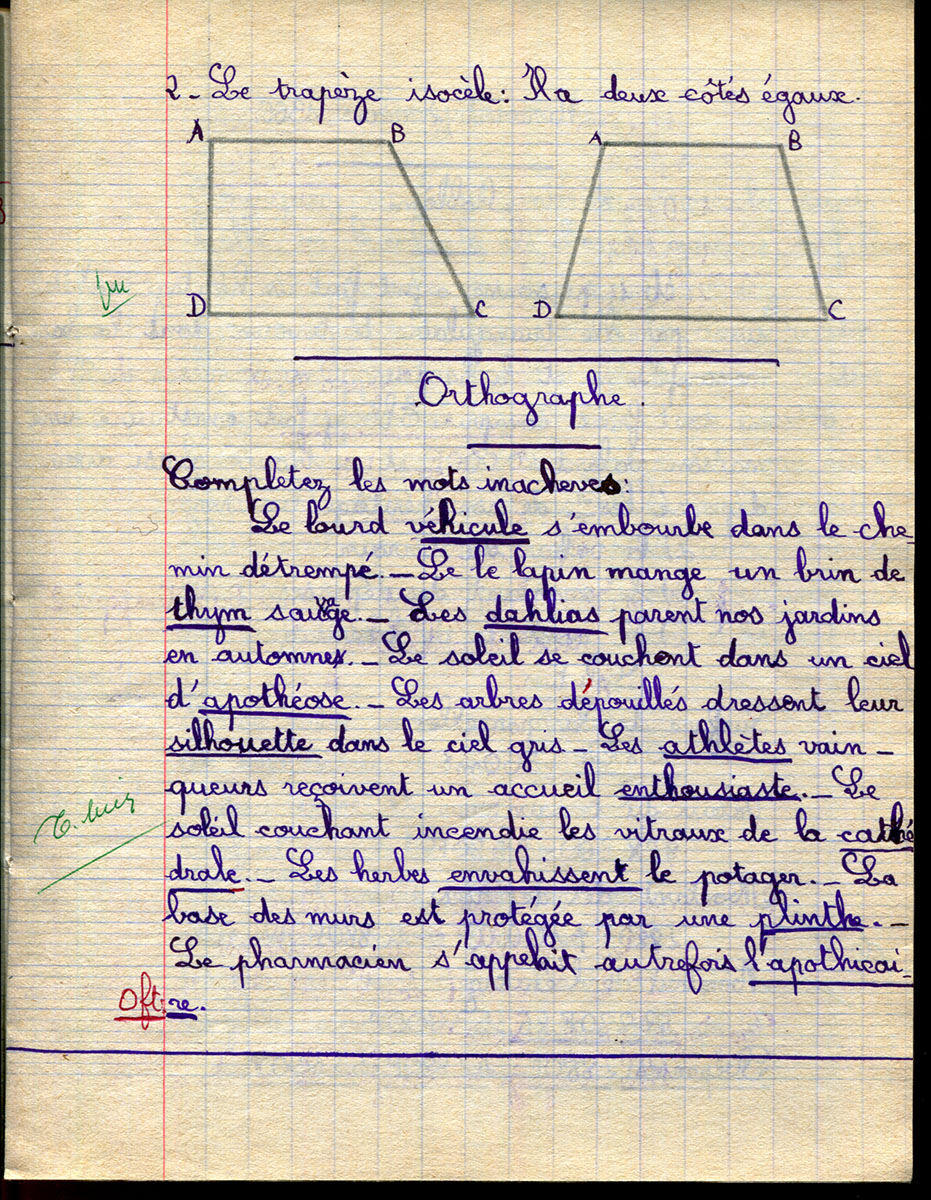 2 - Le trapèze isocèle: Il a deux côtés égaux.
A B A B
Vu
D C D C
Orthographe.
Completez les mots inachevés:
Le lourd véhicule s'embourbe dans le che_
min détrempé._ Le le lapin mange un brin de
thym sauvage._ Les dahlias parent nos jardins
en automne._ Le soleil se couchent dans un ciel
d'apothéose._ Les arbres dépouillés dressent leur
silhouette dans le ciel gris _ Les athlètes vain_
queurs reçoivent un accueil enthousiaste._ Le
T. bien
soléil couchant incendie les vitraux de la cathé
drale._ Les herbes envahissent le potager._ La
base des murs est protégée par une plinthe._
Le pharmacien s'appelait autrefois l'apothicai_
Oft re.